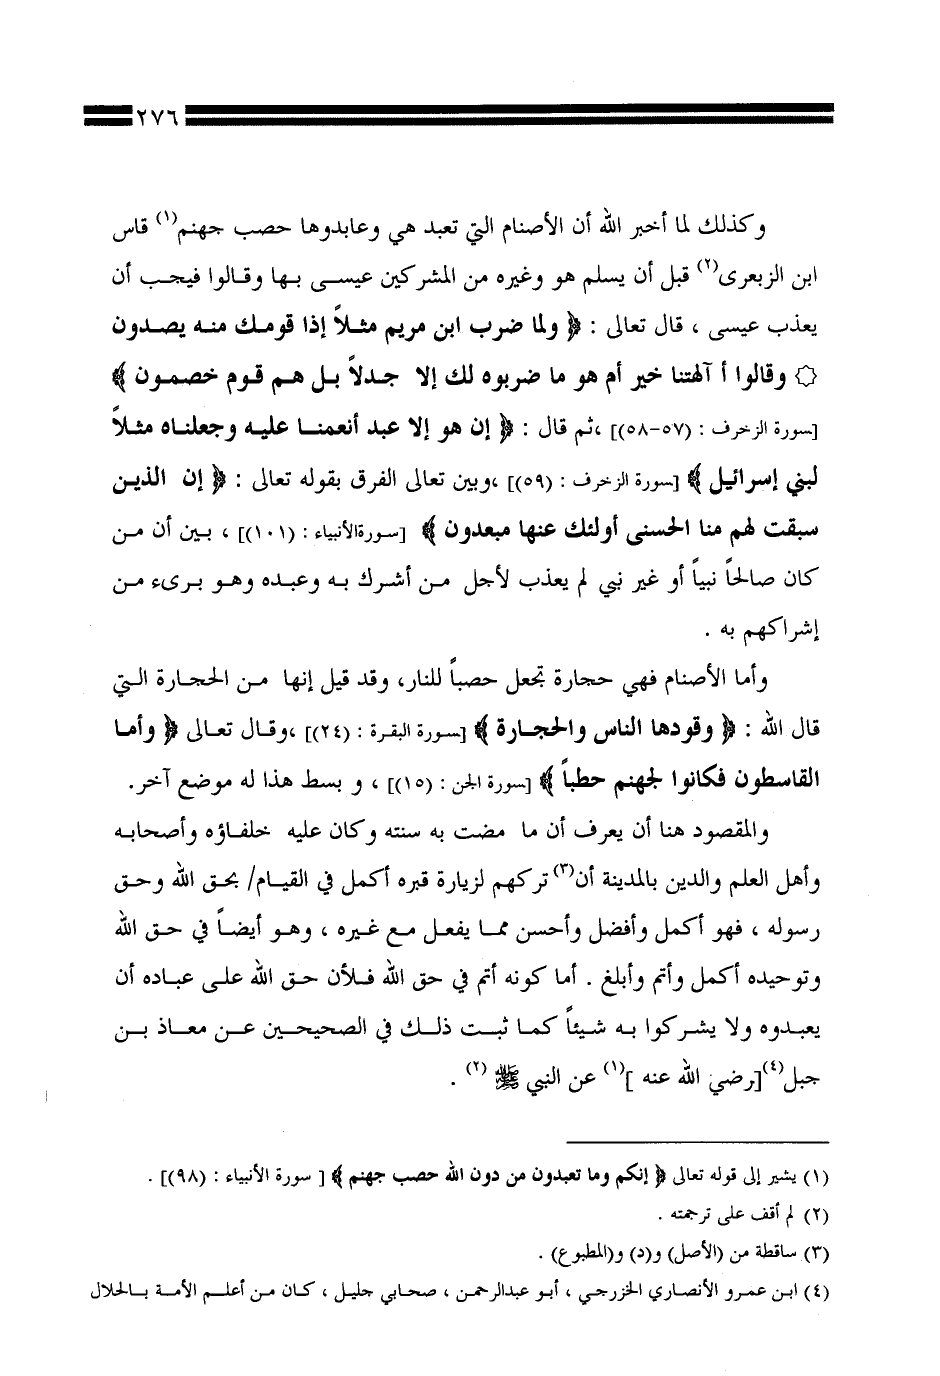 ٢٧٦
وكذلك لما أخبر الله أن الأصنام التي تعبد هي وعابدوها حصب جهنم(١) قاس
ابن الزبعرى(٢) قبل أن يسلم هو وغيره من المشركين عيسى بها وقالوا فيجب أن
يعذب عيسى ، قال تعالى : ﴿ ولما ضرب ابن مريم مثلاً إذا قومك منه يصدون
۞ وقالوا أ آلهتنا خير أم هو ما ضربوه لك إلا جدلاً بل هم قوم خصمون ﴾
[سورة الزخرف : (٥٧-٥٨)] ،ثم قال : ﴿ إن هو إلا عبد أنعمنا عليه وجعلناه مثلاً
لبني إسرائيل ﴾ [سورة الزخرف : (٥٩)] ،وبين تعالى الفرق بقوله تعالى : ﴿ إن الذين
سبقت لهم منا الحسنى أولئك عنها مبعدون ﴾ [سورةالأنبياء : (١٠١)] ، بين أن من
كان صالحاً نبياً أو غير نبي لم يعذب لأجل من أشرك به وعبده وهو برىء من
إشراكهم به .
وأما الأصنام فهي حجارة تجعل حصباً للنار، وقد قيل إنها من الحجارة التي
قال الله : ﴿ وقودها الناس والحجارة ﴾ [سورة البقرة : (٢٤)] ،وقال تعالى ﴿ وأما
القاسطون فكانوا لجهنم حطباً ﴾ [سورة الجن : (١٥)] ، و بسط هذا له موضع آخر.
والمقصود هنا أن يعرف أن ما مضت به سنته وكان عليه خلفاؤه وأصحابه
وأهل العلم والدين بالمدينة أن(٣) تركهم لزيارة قبره أكمل في القيام/ بحق الله وحق
رسوله ، فهو أكمل وأفضل وأحسن مما يفعل مع غيره ، وهو أيضاً في حق الله
وتوحيده أكمل وأتم وأبلغ . أما كونه أتم في حق الله فلأن حق الله على عباده أن
يعبدوه ولا يشركوا به شيئاً كما ثبت ذلك في الصحيحين عن معاذ بن
جبل(٤)[رضي الله عنه ](١) عن النبي ﷺ (٢) .
(١) يشير إلى قوله تعالى ﴿ إنكم وما تعبدون من دون الله حصب جهنم ﴾ [ سورة الأنبياء : (٩٨)] .
(٢) لم أقف على ترجمته .
(٣) ساقطة من (الأصل) و(د) و(المطبوع) .
(٤) ابن عمرو الأنصاري الخزرجي ، أبو عبدالرحمن ، صحابي جليل ، كان من أعلم الأمة بالحلال